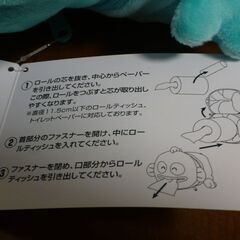 ① ロールの芯を抜き、中心からペーパー
を引き出してください。
この際、ロールをつぶすと芯が取り出し
やすくなります。
※直径11.5cm以下のロールティッシュ、
トイレットペーパーに対応しております。
② 首部分のファスナーを開け、中にロー
ルティッシュを入れてください。
③ ファスナーを閉め、口部分からロール
ティッシュを引き出してください。